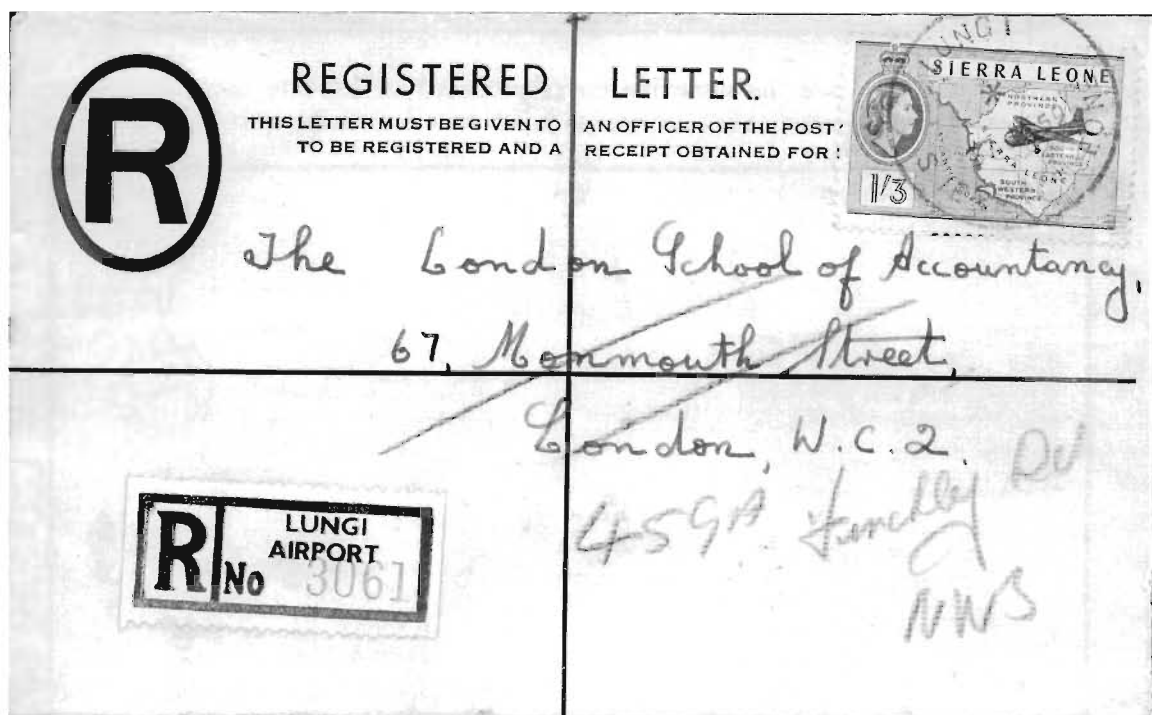 REGISTERED LETTER.
THIS LETTER MUST BE GIVEN TO AN OFFICER OF THE POST
TO BE REGISTERED AND A RECEIPT OBTAINED FOR
R
LUNGI
SIERRA LEONE
NORTHERN
PROVINCE
SIERRA LEONE
SOUTH
WESTERN
PROVINCE
EASTERN
PROVINCE
1/3
The London School of Accountancy,
67, Monmouth Street,
London, W.C.2.
459A Finchley
NW3
R
LUNGI
AIRPORT
No 3061